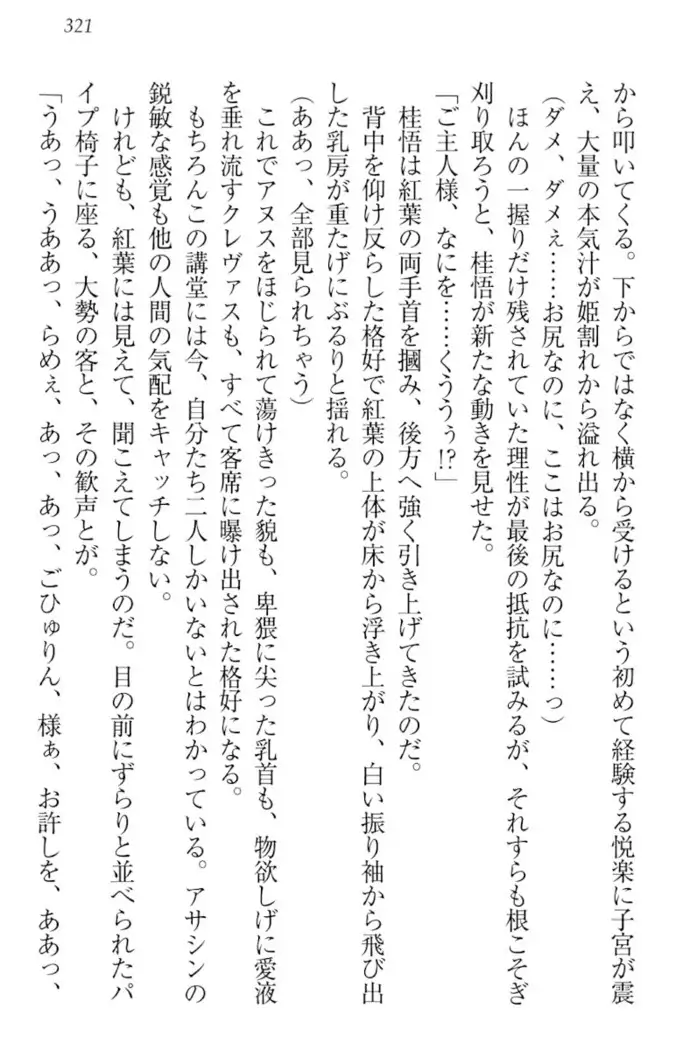 321
から叩いてくる。下からではなく横から受けるという初めて経験する悦楽に子宮が震
え、大量の本気汁が姫割れから溢れ出る。
(ダメ、ダメぇ……お尻なのに、ここはお尻なのに……っ)
ほんの一握りだけ残されていた理性が最後の抵抗を試みるが、それすらも根こそぎ
刈り取ろうと、桂悟が新たな動きを見せた。
「ご主人様、なにを……くううぅ!?」
桂悟は紅葉の両手首を摑み、後方へ強く引き上げてきたのだ。
背中を仰け反らした格好で紅葉の上体が床から浮き上がり、白い振り袖から飛び出
した乳房が重たげにぶるりと揺れる。
(ああっ、全部見られちゃう)
これでアヌスをほじられて蕩けきった貌も、卑猥に尖った乳首も、物欲しげに愛液
を垂れ流すクレヴァスも、すべて客席に曝け出された格好になる。
もちろんこの講堂には今、自分たち二人しかいないとはわかっている。アサシンの
鋭敏な感覚も他の人間の気配をキャッチしない。
けれども、紅葉には見えて、聞こえてしまうのだ。目の前にずらりと並べられたパ
イプ椅子に座る、大勢の客と、その歓声とが。
「うあっ、うああっ、らめぇ、あっ、あっ、ごひゅりん、様ぁ、お許しを、ああっ、